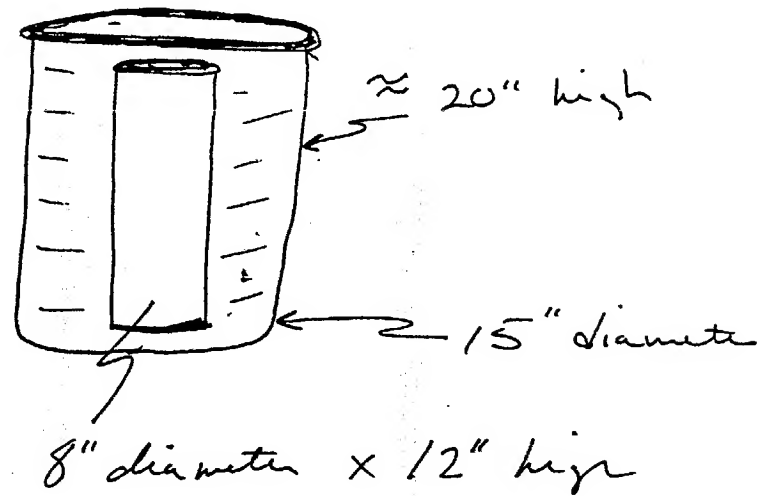 ≈ 20" high
15" diameter
8" diameter x 12" high